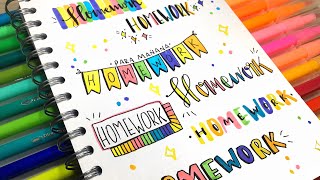 Homework
HOMEWORK
PARA MAÑANA
HOMEWORK
Homework
HOMEWORK
HOMEWORK
HOMEWORK